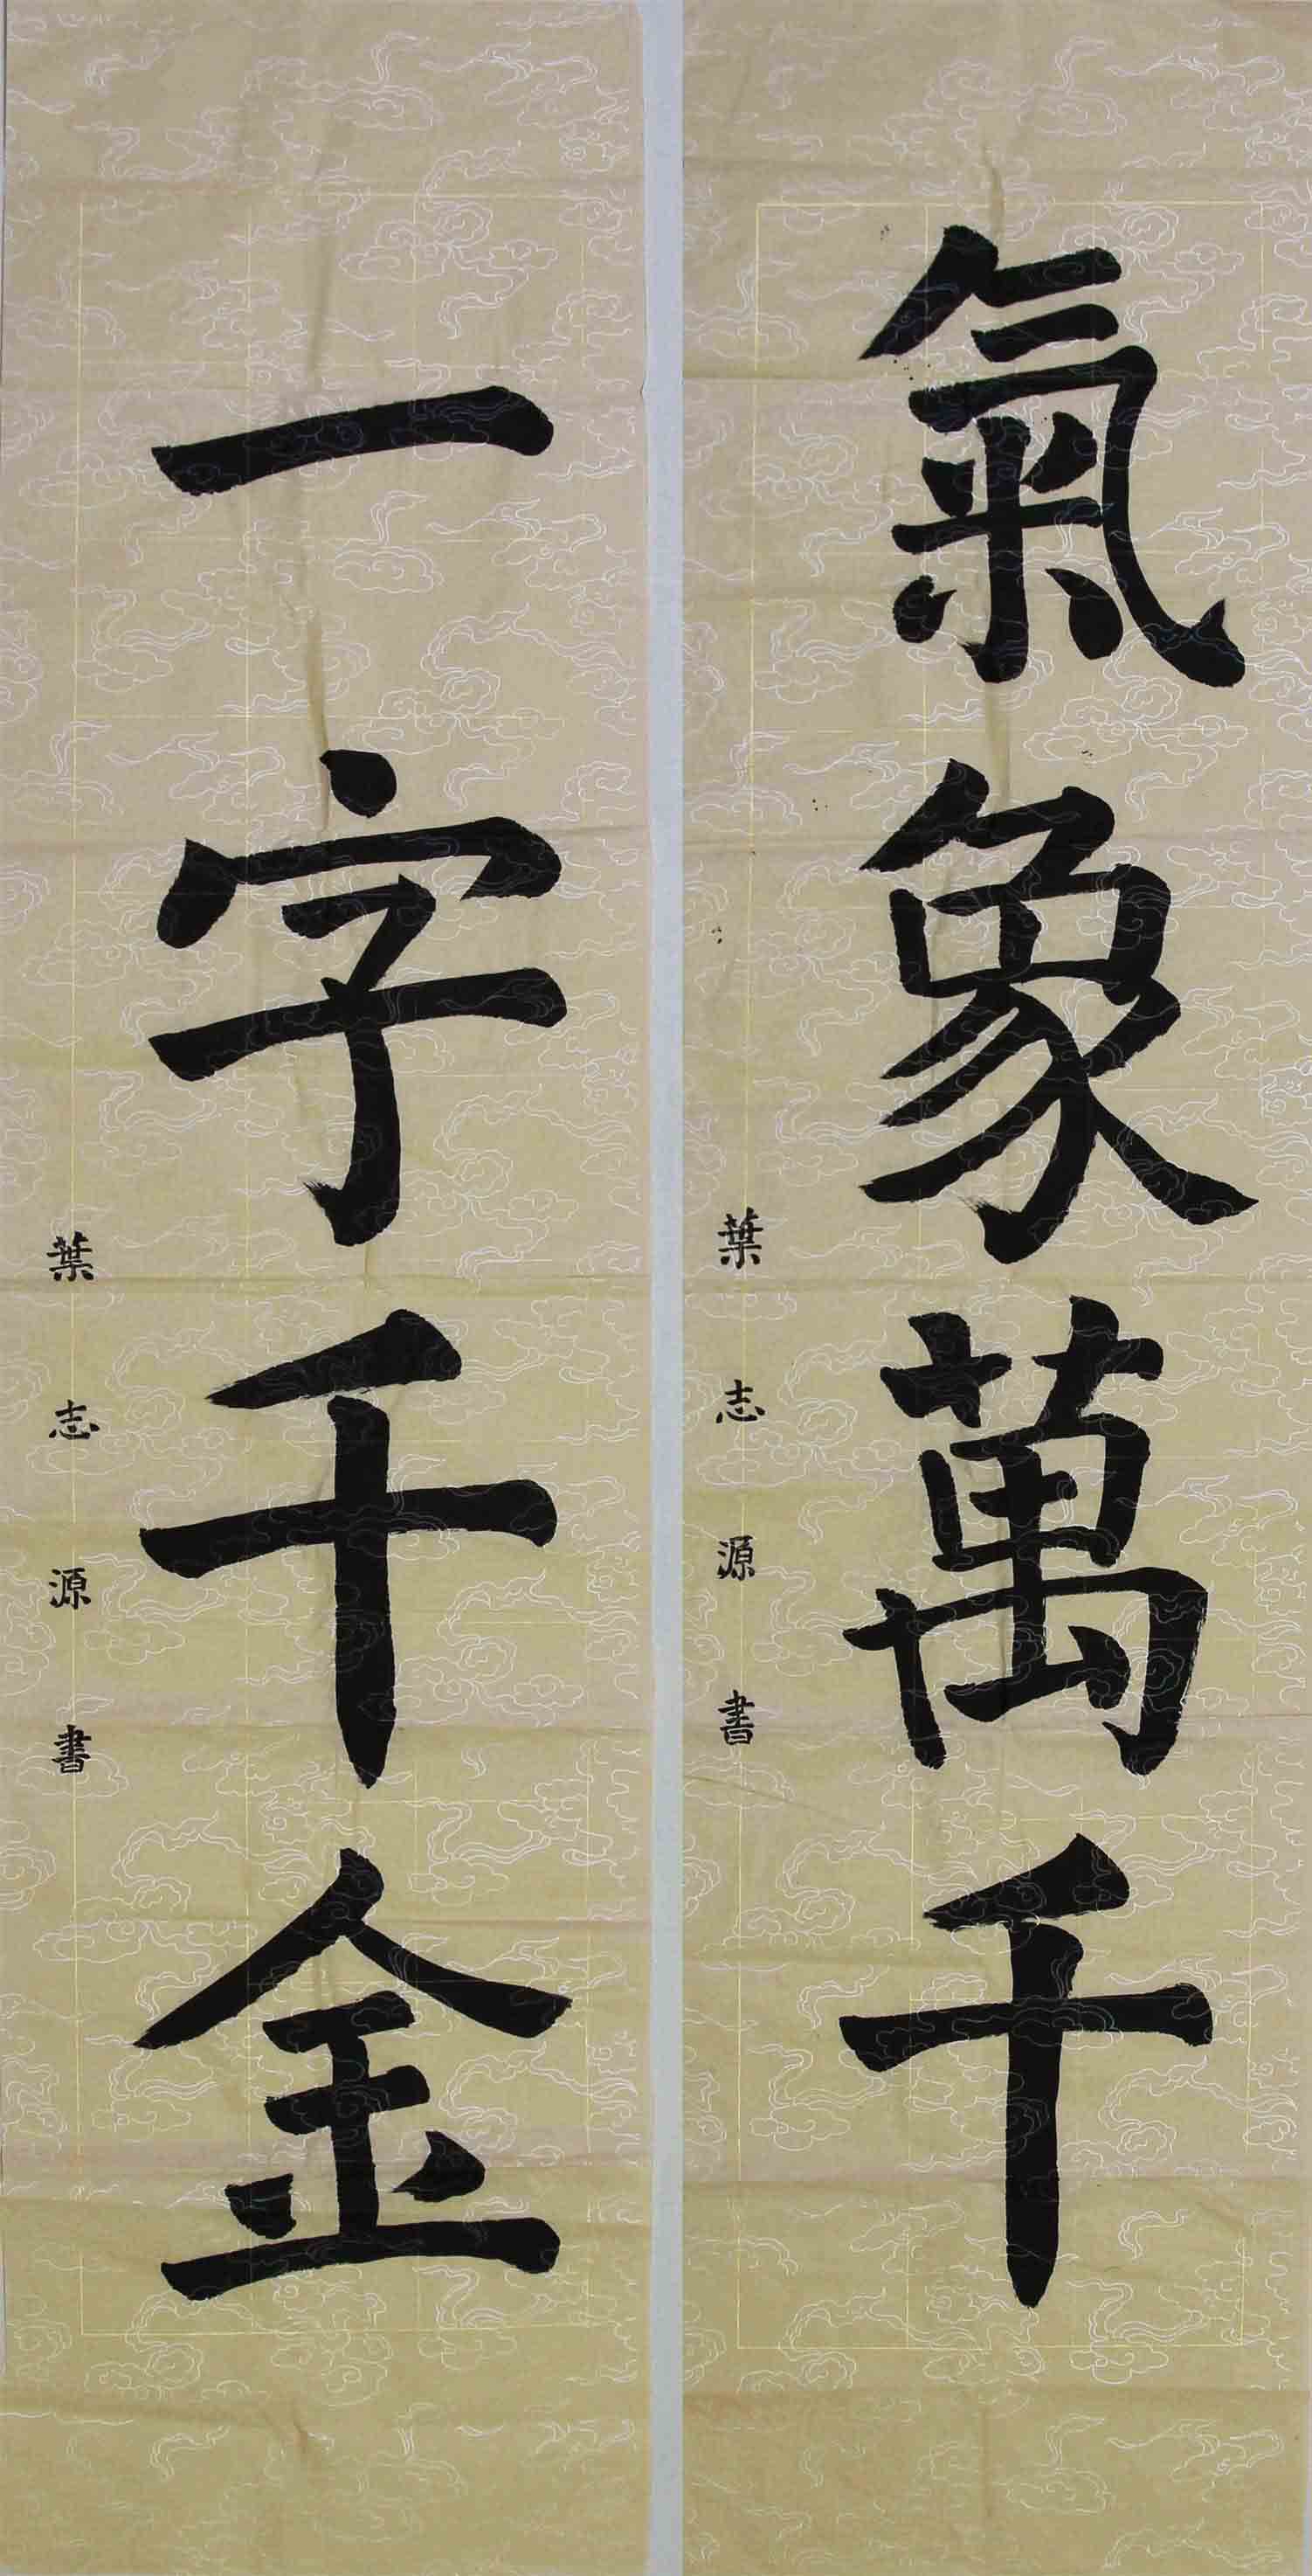 氣象萬千
葉志源書
一字千金
葉志源書